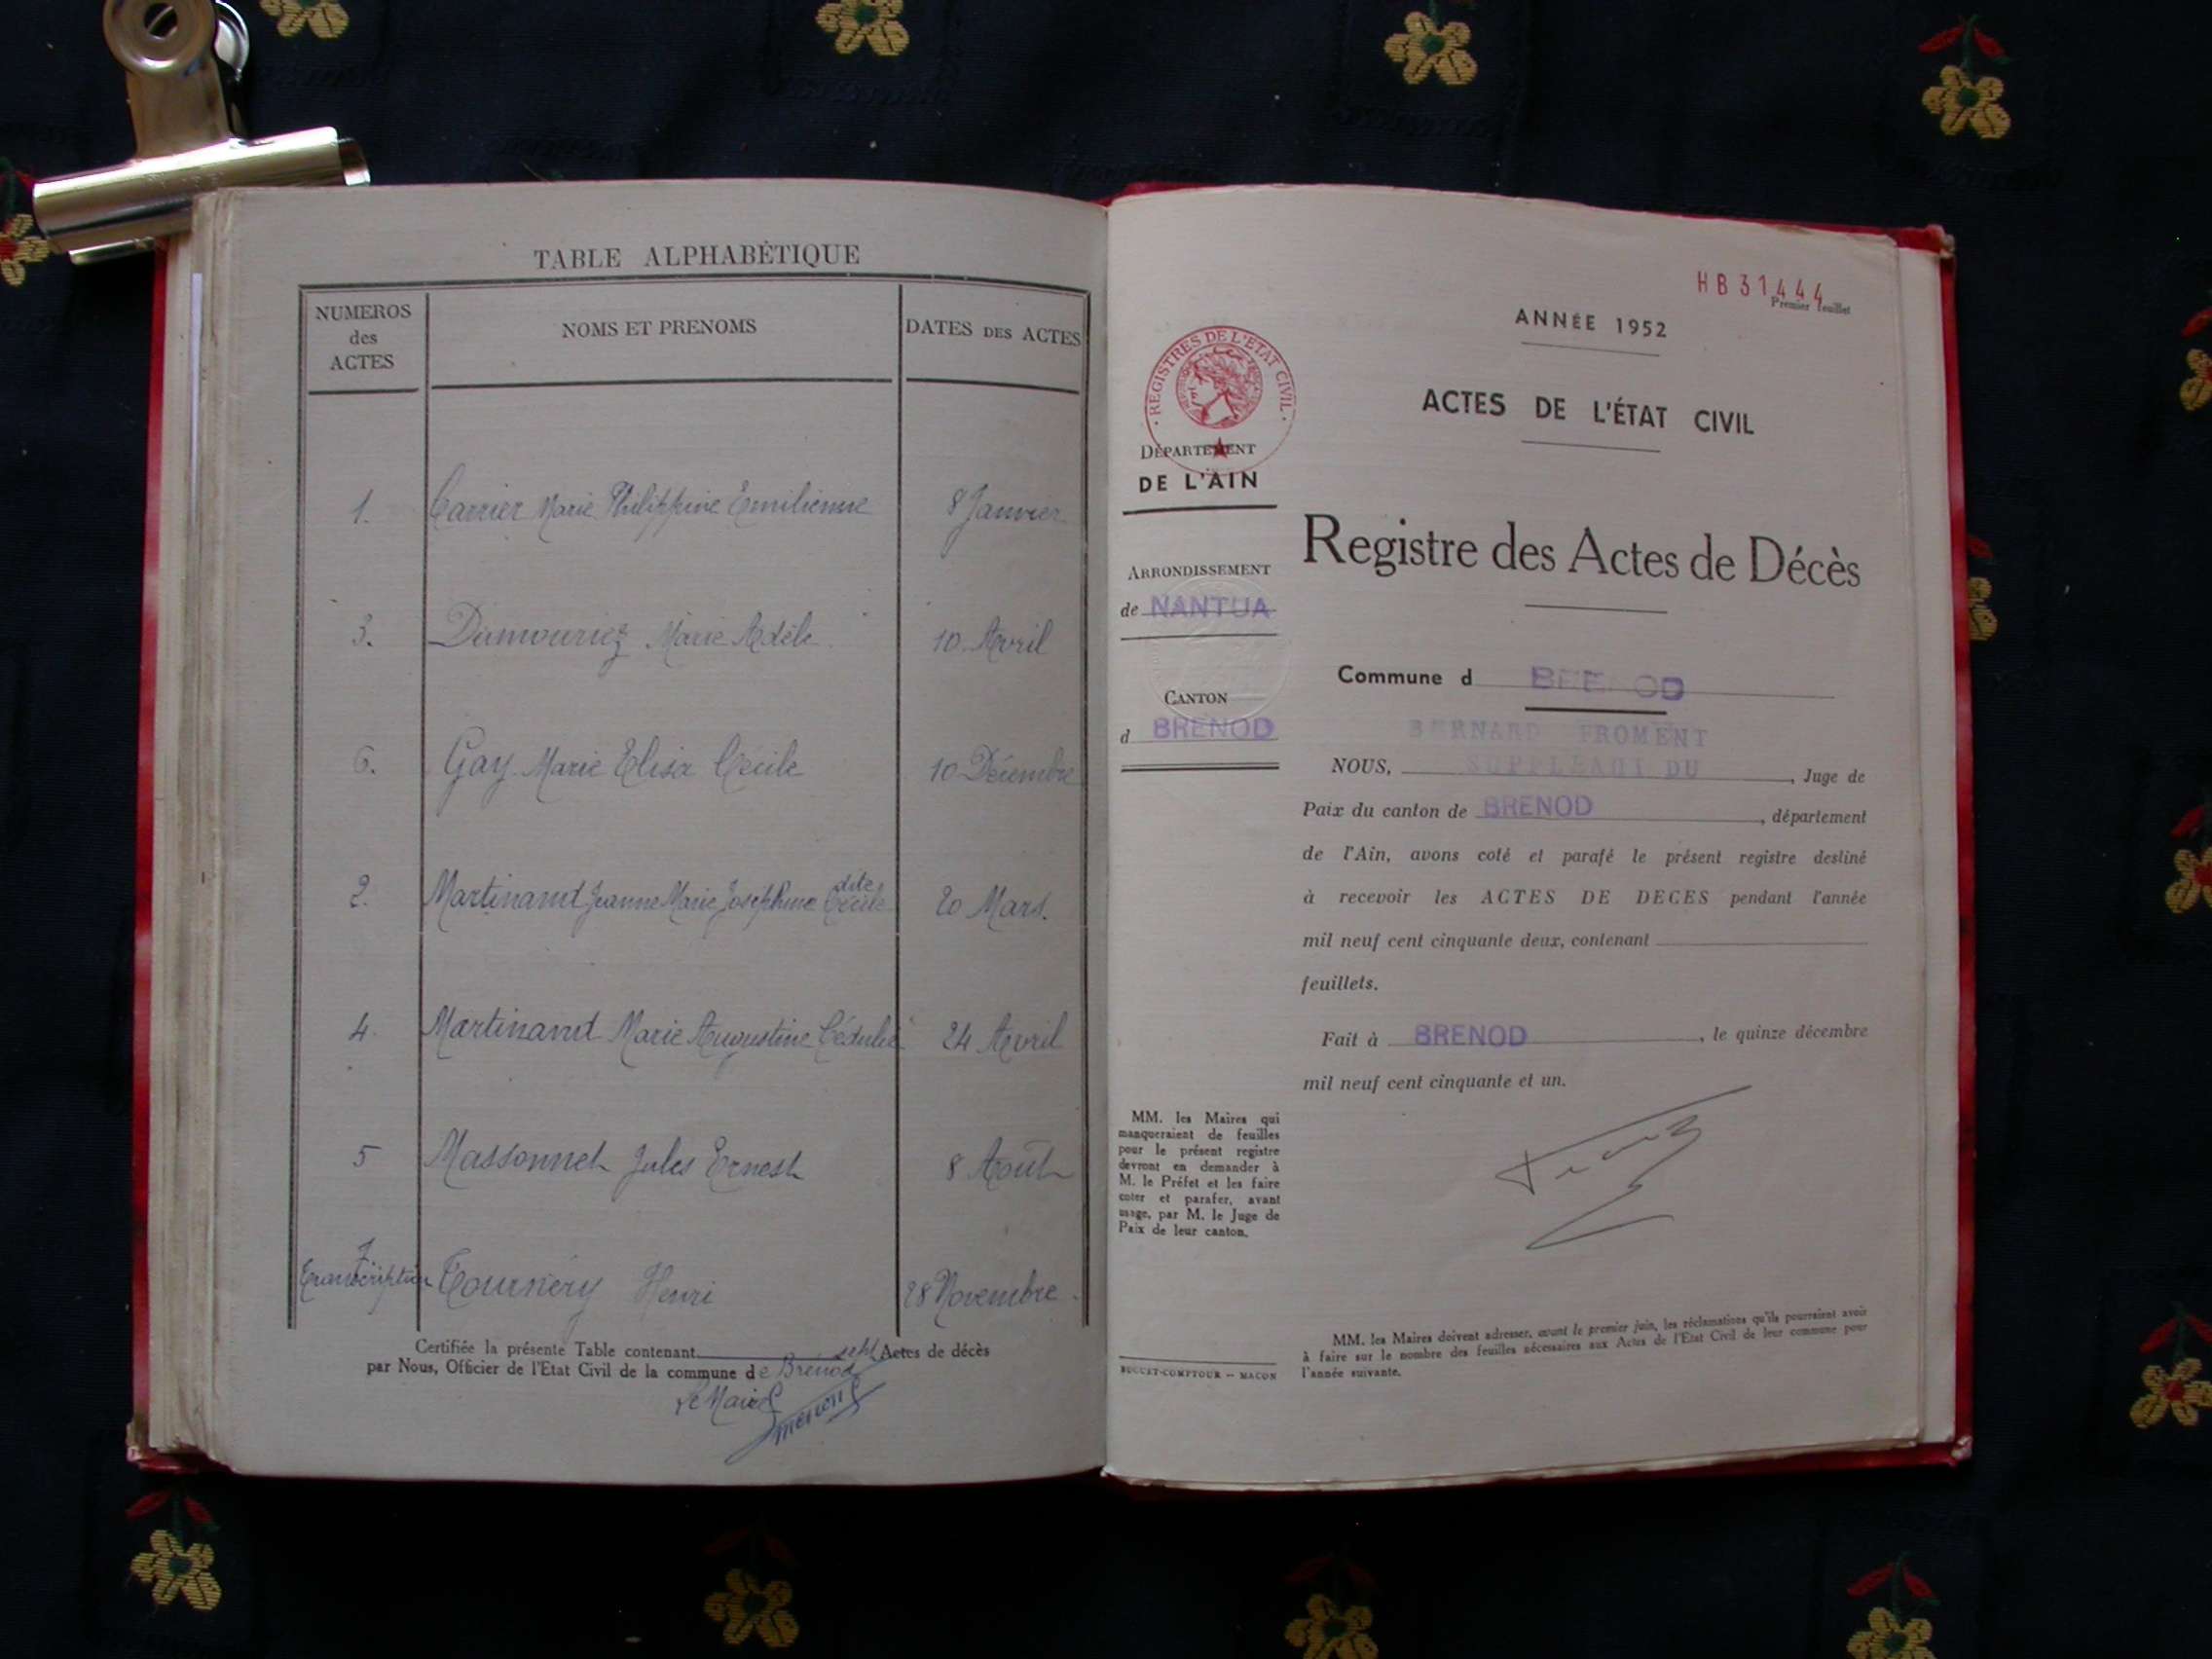 TABLE ALPHABÉTIQUE
NUMEROS
des
ACTES
NOMS ET PRENOMS
DATES DES ACTES
1. Carrier Marie Philippine Emilienne 8 Janvier
3. Dumouriez Marie Adèle. 10 Avril
6. Gay Marie Elisa Cécile 10 Décembre
2. Martinand Jeanne Marie Josephine dite Cécile 20 Mars.
4. Martinand Marie Augustine Cédulie 24 Avril
5 Massonnet Jules Ernest 8 Août
7
transcription Tournery Henri 28 Novembre.
Certifiée la présente Table contenant sept Actes de décès
par Nous, Officier de l'Etat Civil de la commune de Brénod
Le Maire
HB31444
Premier feuillet
ANNÉE 1952
ACTES DE L'ÉTAT CIVIL
Registre des Actes de Décès
Commune d BRENOD
BERNARD FROMENT
SUPPLEANT DU
NOUS, , Juge de
Paix du canton de BRENOD , département
de l'Ain, avons coté et parafé le présent registre destiné
à recevoir les ACTES DE DECES pendant l'année
mil neuf cent cinquante deux, contenant
feuillets.
Fait à BRENOD , le quinze décembre
mil neuf cent cinquante et un.
MM. les Maires doivent adresser, avant le premier juin, les réclamations qu'ils pourraient avoir
à faire sur le nombre des feuilles nécessaires aux Actes de l'Etat Civil de leur commune pour
l'année suivante.
· REGISTRES DE L'ÉTAT CIVIL ·
DÉPARTEMENT
DE L'AIN
ARRONDISSEMENT
de NANTUA
CANTON
d BRENOD
MM. les Maires qui
manqueraient de feuilles
pour le présent registre
devront en demander à
M. le Préfet et les faire
coter et parafer, avant
usage, par M. le Juge de
Paix de leur canton.
BUGUET-COMPTOUR -- MACON